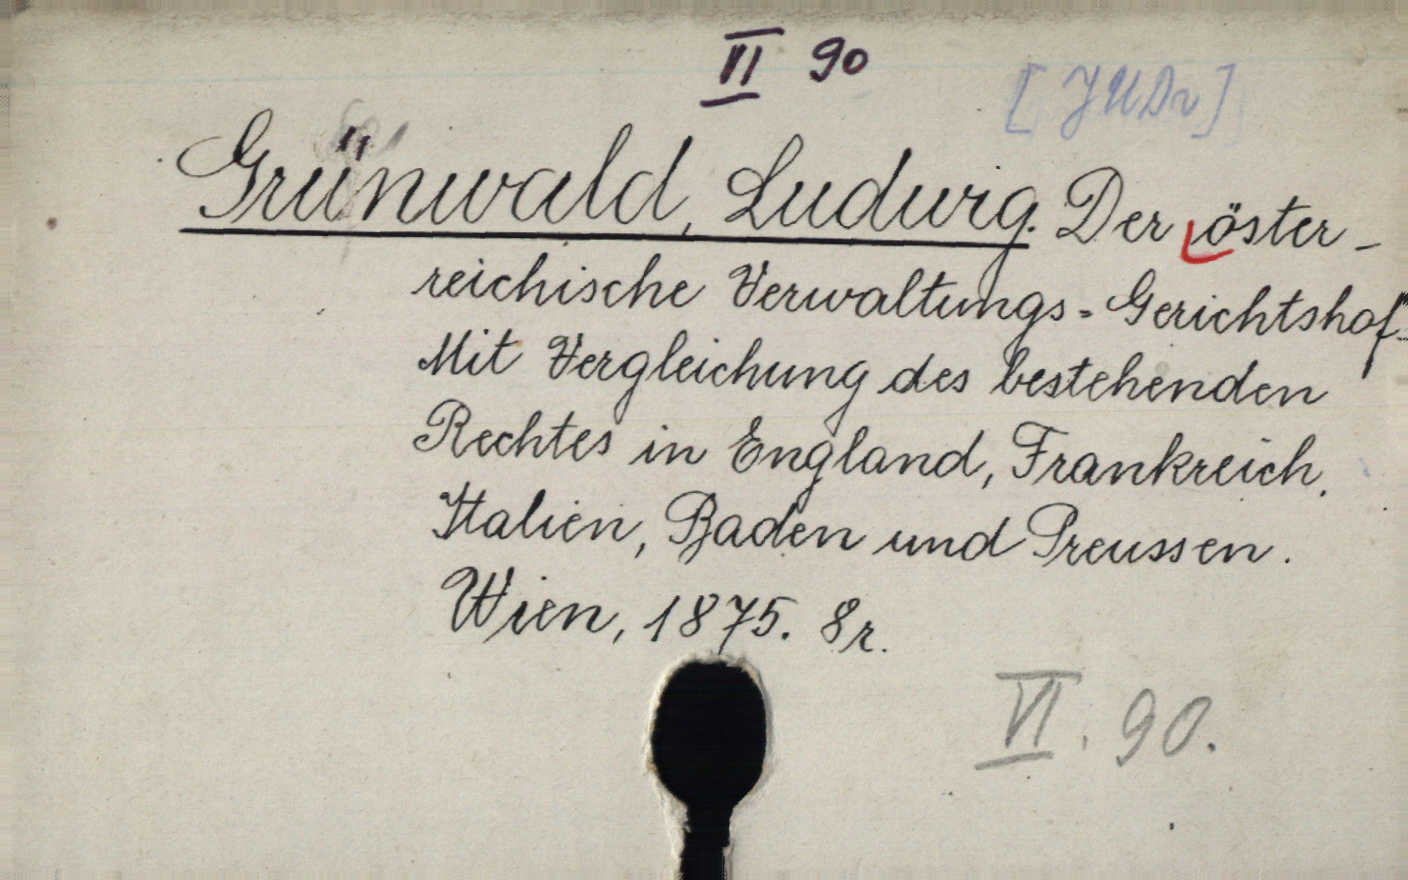 VI 90
[JUDr]
Grünwald, Ludwig. Der öster-
reichische Verwaltungs=Gerichtshof.
Mit Vergleichung des bestehenden
Rechtes in England, Frankreich,
Italien, Baden und Preussen.
Wien, 1875. 8r.
VI. 90.